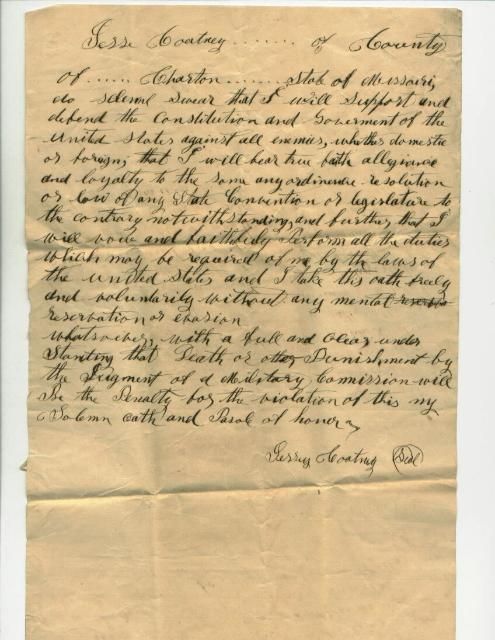 Jesse Coatney ........ of County
of ...... Charton ........ State of Missouri,
do solemd swear that I will support and
defend the Constitution and Goverment of the
united states against all enemies, whether domestic
or foreign; that I will bear true faith allegiance
and loyalty to the same any ordinence resolution
or law of any State Convention or legislature to
the contrary notwithstanding, and further, that I
will and faithfuly Perform all the duties
which may be required of me by the laws of
the united States and I take this oath freely
and voluntarily without any mental
reservation or evasion
whatsoever, with a full and Clear under
Standing that Death or other Punishment by
the Judgment of a Military Commission will
be the Penalty for the violation of this my
Solemn oath and Parole of honor
Coatney (Seal)